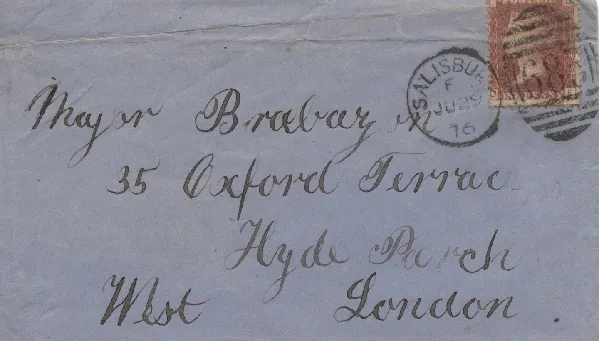 SALISBURY
F
JU 29
76
Major Brabazon
35 Oxford Terrace
Hyde Parch
West London